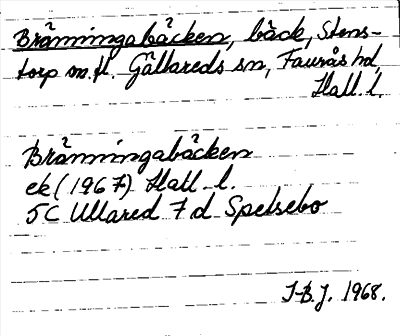 Bränningabäcken, bäck, Stens-
torp m.fl. Gällareds sn, Faurås hd,
Hall. l.
Bränningabäcken
ek (1967) Hall. l.
5C Ullared 7 d Spelsebo
J-B.J. 1968.